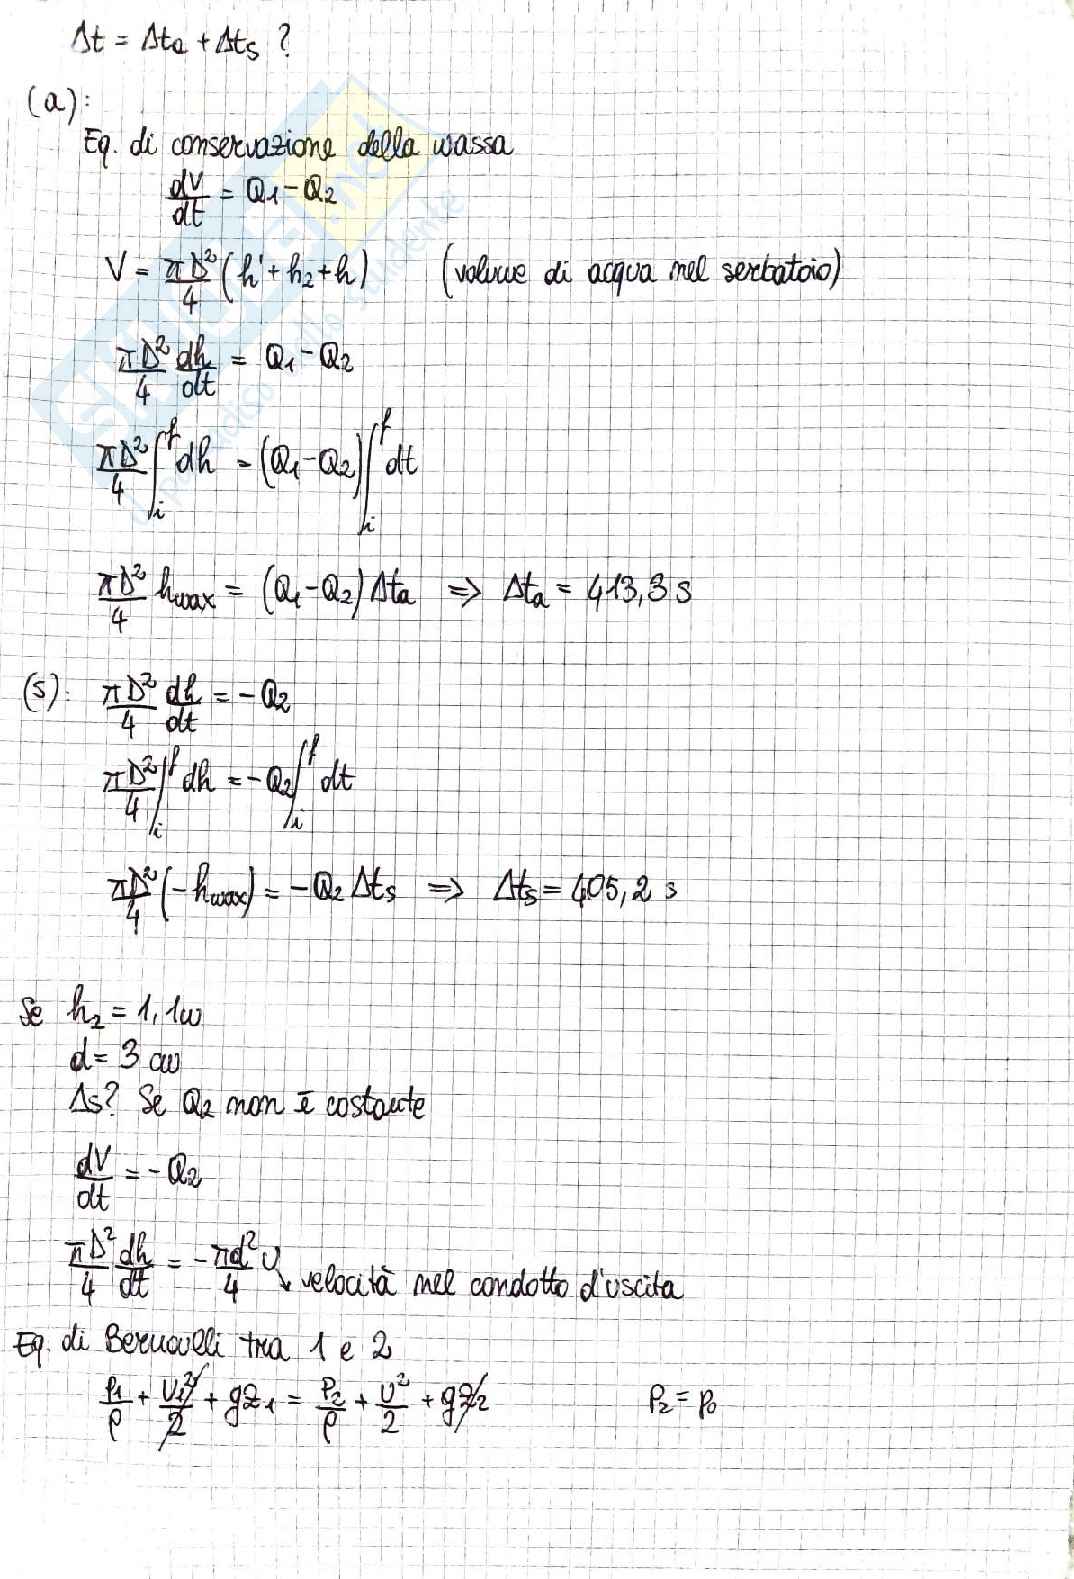 Δt = Δta + Δts ?
(a):
Eq. di conservazione della massa
dV/dt = Q1 - Q2
V = πD²/4 (h' + h2 + h) (volume di acqua nel serbatoio)
πD²/4 dh/dt = Q1 - Q2
πD²/4 ∫_i^f dh = (Q1 - Q2) ∫_i^f dt
πD²/4 hmax = (Q1 - Q2) Δta => Δta = 413,3 s
(s): πD²/4 dh/dt = -Q2
πD²/4 ∫_i^f dh = -Q2 ∫_i^f dt
πD²/4 (-hmax) = -Q2 Δts => Δts = 405,2 s
Se h2 = 1,1m
d = 3 cm
Δs? Se Q2 non è costante
dV/dt = -Q2
πD²/4 dh/dt = -πd²/4 U ↘ velocità nel condotto d'uscita
Eq. di Bernoulli tra 1 e 2
p1/ρ + U1²/2 + gz1 = p2/ρ + U²/2 + gz2 p2 = p0